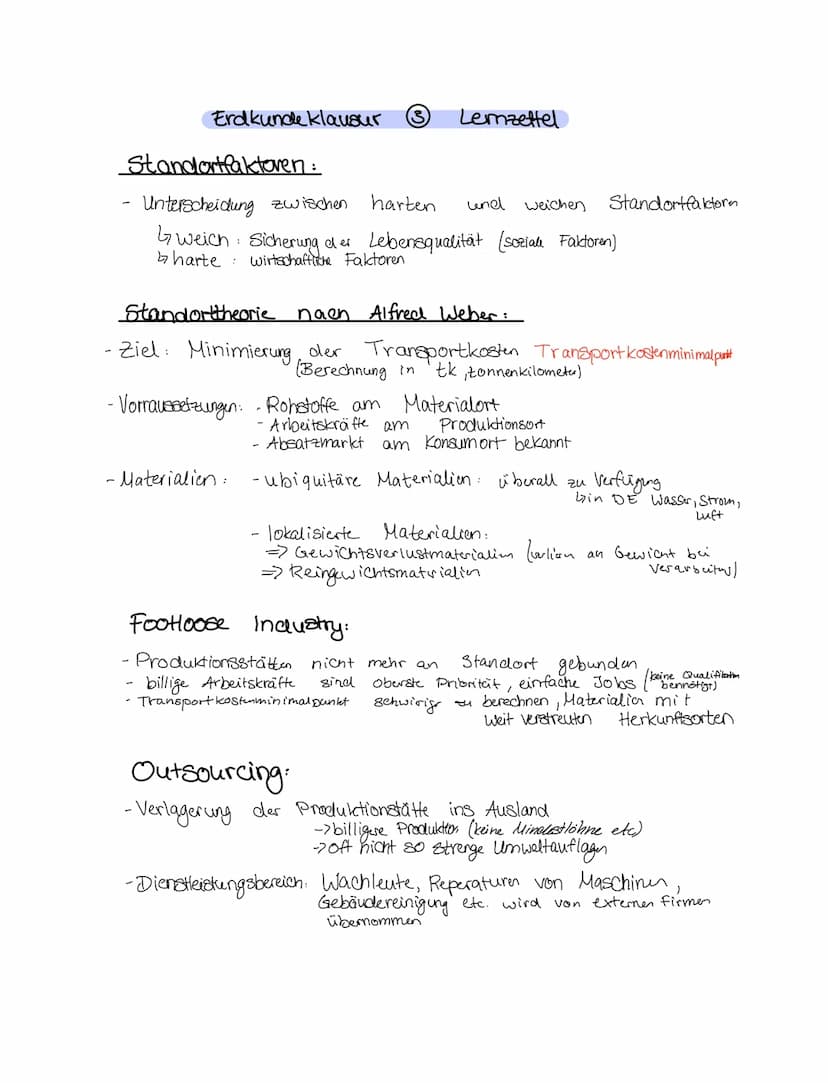 Erdkundeklausur ③ Lernzettel
Standortfaktoren:
- Unterscheidung zwischen harten und weichen Standortfaktoren
↳ weich: Sicherung der Lebensqualität (soziale Faktoren)
↳ harte: wirtschaftliche Faktoren
Standorttheorie nach Alfred Weber:
- Ziel: Minimierung der Transportkosten Transportkostenminimalpunkt
(Berechnung in tk, tonnenkilometer)
- Vorraussetzungen: - Rohstoffe am Materialort
- Arbeitskräfte am Produktionsort
- Absatzmarkt am Konsumort bekannt
- Materialien: - ubiquitäre Materialien: überall zu Verfügung
↳ in DE Wasser, Strom,
Luft
- lokalisierte Materialien:
=> Gewichtsverlustmaterialien (verlieren an Gewicht bei
Verarbeitung)
=> Reingewichtsmaterialien
Footloose Industry:
- Produktionsstätten nicht mehr an Standort gebunden
- billige Arbeitskräfte sind oberste Priorität, einfache Jobs (keine Qualifikation
bennötigt)
- Transportkostenminimalpunkt schwierig zu berechnen, Materialien mit
weit verstreuten Herkunftsorten
Outsourcing:
- Verlagerung der Produktionstätte ins Ausland
-> billigere Produktion (keine Mindestlöhne etc)
-> oft nicht so strenge Umweltauflagen
- Dienstleistungsbereich: Wachleute, Reperaturen von Maschinen,
Gebäudereinigung etc. wird von externen Firmen
übernommen